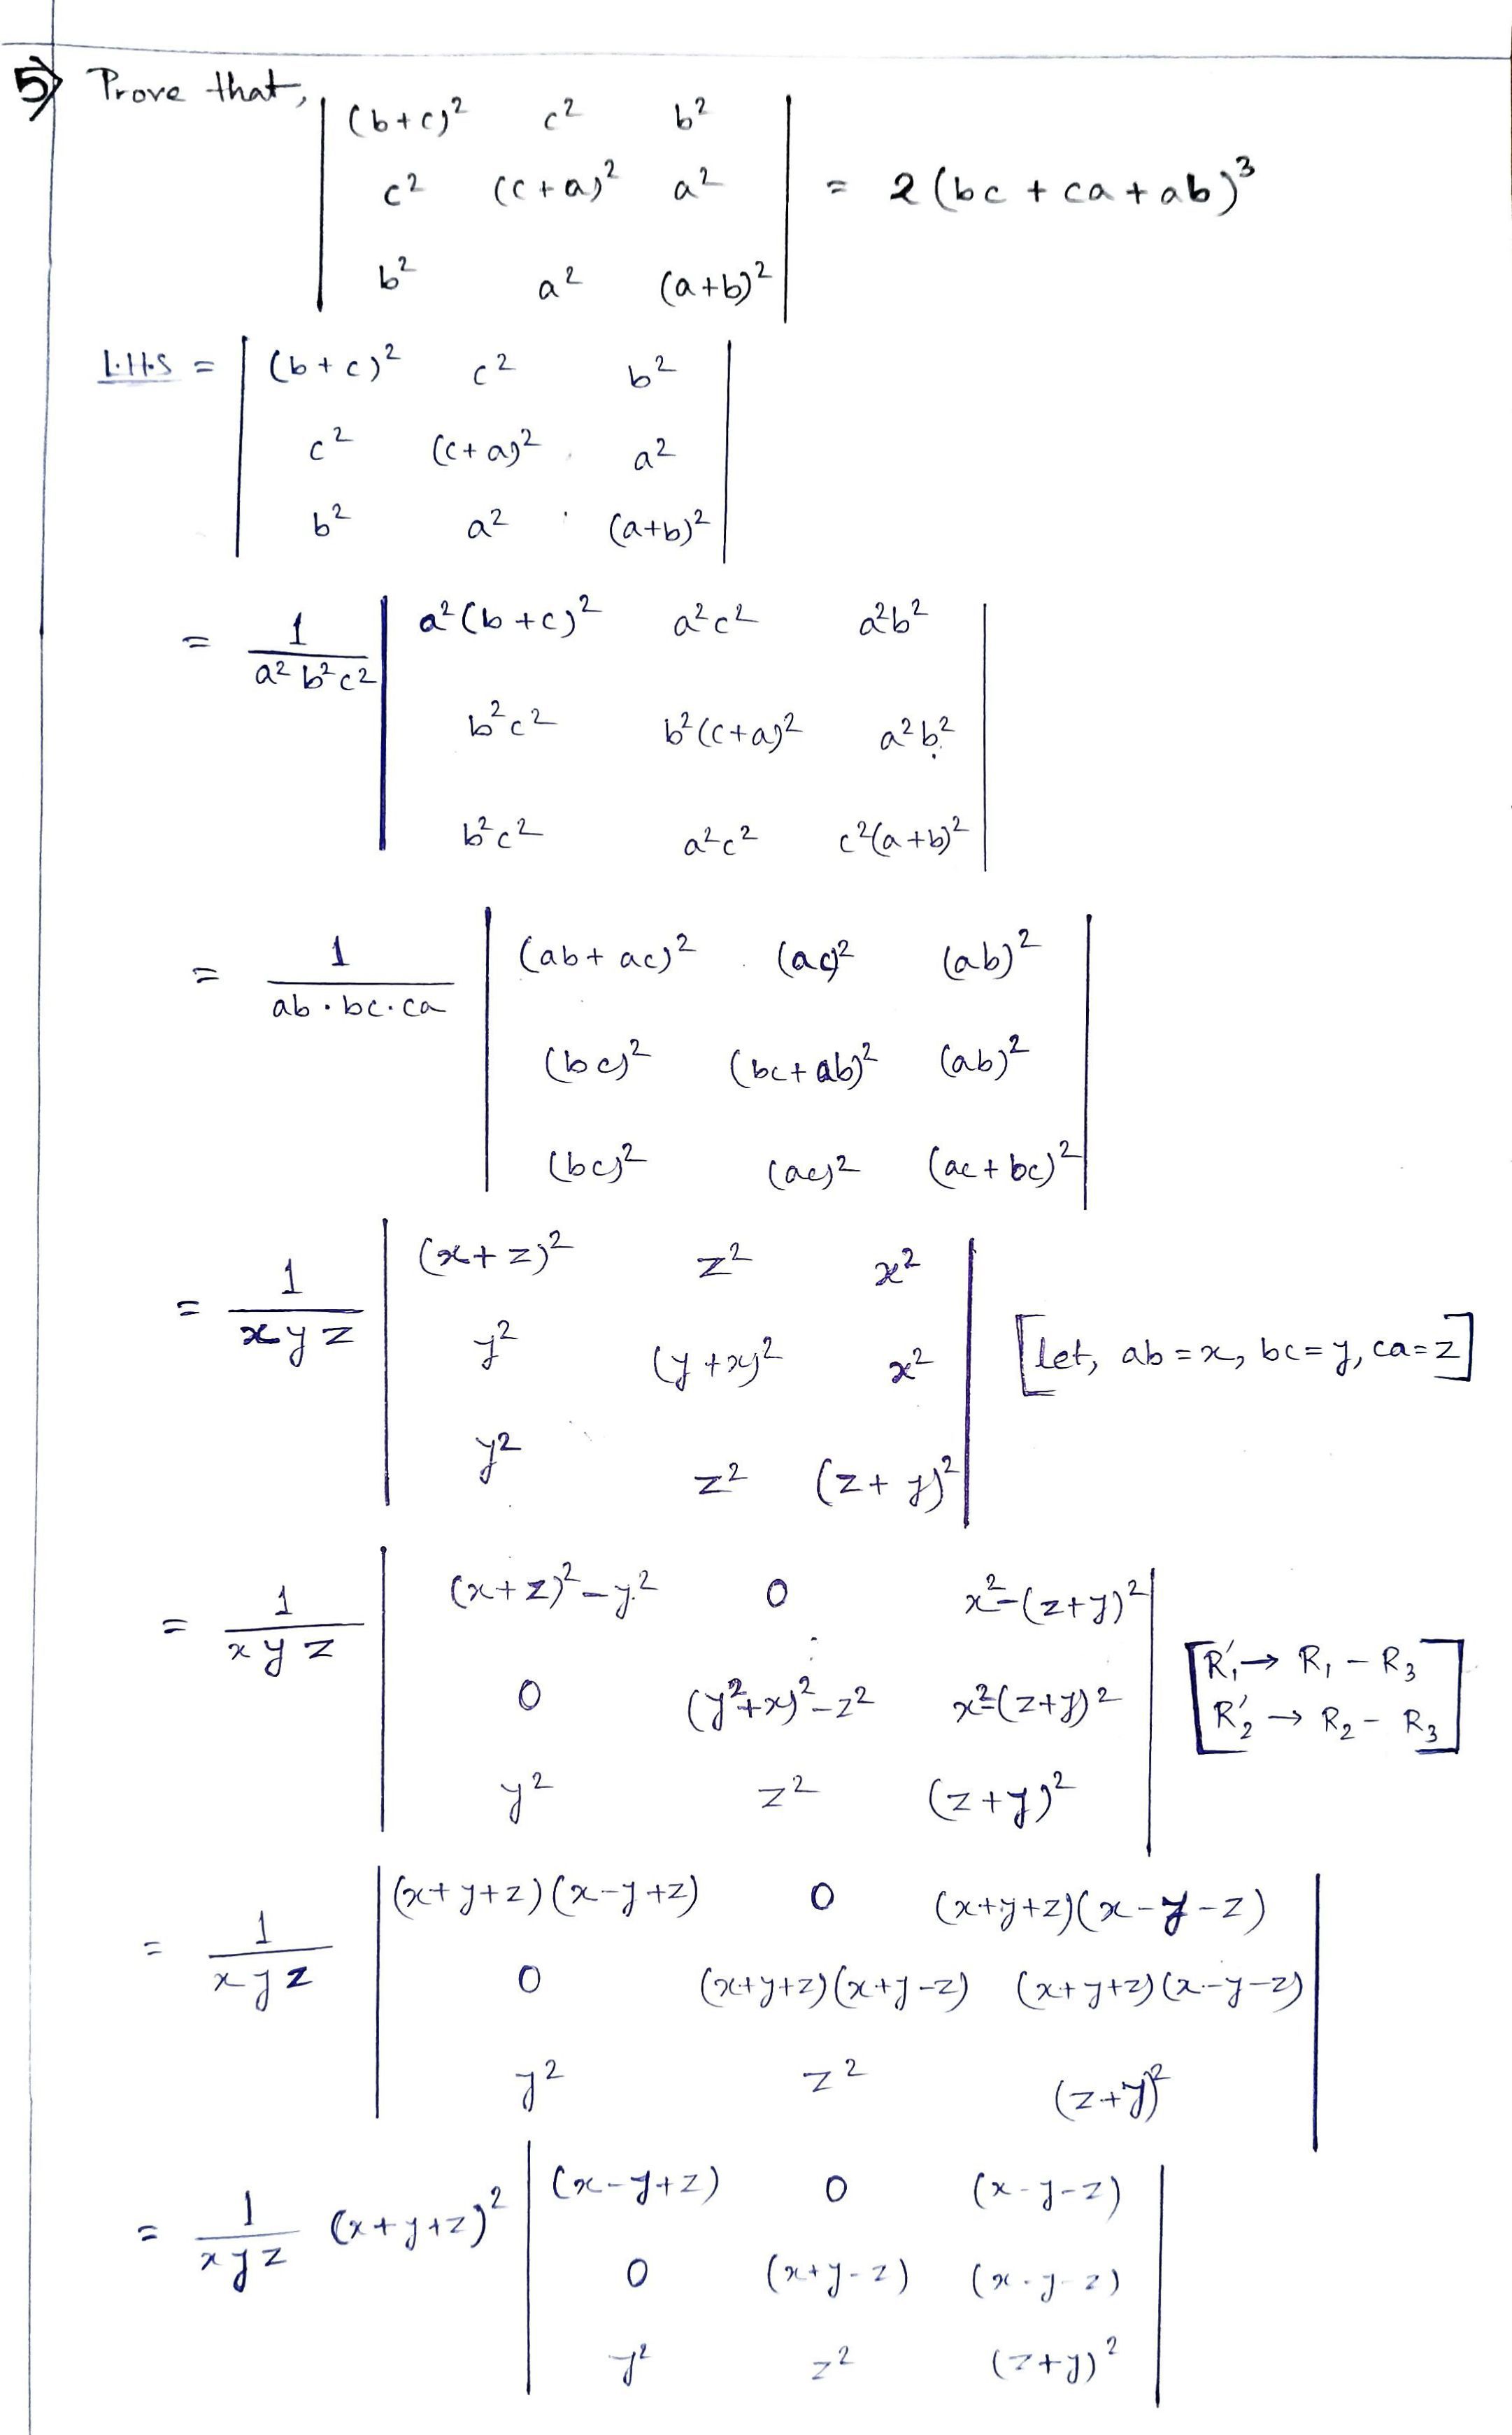 5) Prove that,
| (b+c)² c² b² |
| c² (c+a)² a² | = 2(bc + ca + ab)³
| b² a² (a+b)² |
L.H.S = | (b+c)² c² b² |
| c² (c+a)² a² |
| b² a² (a+b)² |
= 1/(a² b² c²) | a²(b+c)² a²c² a²b² |
| b²c² b²(c+a)² a²b² |
| b²c² a²c² c²(a+b)² |
= 1/(ab·bc·ca) | (ab+ac)² (ac)² (ab)² |
| (bc)² (bc+ab)² (ab)² |
| (bc)² (ac)² (ac+bc)² |
= 1/(xyz) | (x+z)² z² x² |
| y² (y+x)² x² | [let, ab = x, bc = y, ca = z]
| y² z² (z+y)² |
= 1/(xyz) | (x+z)²-y² 0 x²-(z+y)² |
| 0 (y²+x)²-z² x²-(z+y)² | [R₁' → R₁ - R₃ R₂' → R₂ - R₃]
| y² z² (z+y)² |
= 1/(xyz) | (x+y+z)(x-y+z) 0 (x+y+z)(x-y-z) |
| 0 (x+y+z)(x+y-z) (x+y+z)(x-y-z) |
| y² z² (z+y)² |
= 1/(xyz) (x+y+z)² | (x-y+z) 0 (x-y-z) |
| 0 (x+y-z) (x-y-z) |
| y² z² (z+y)² |